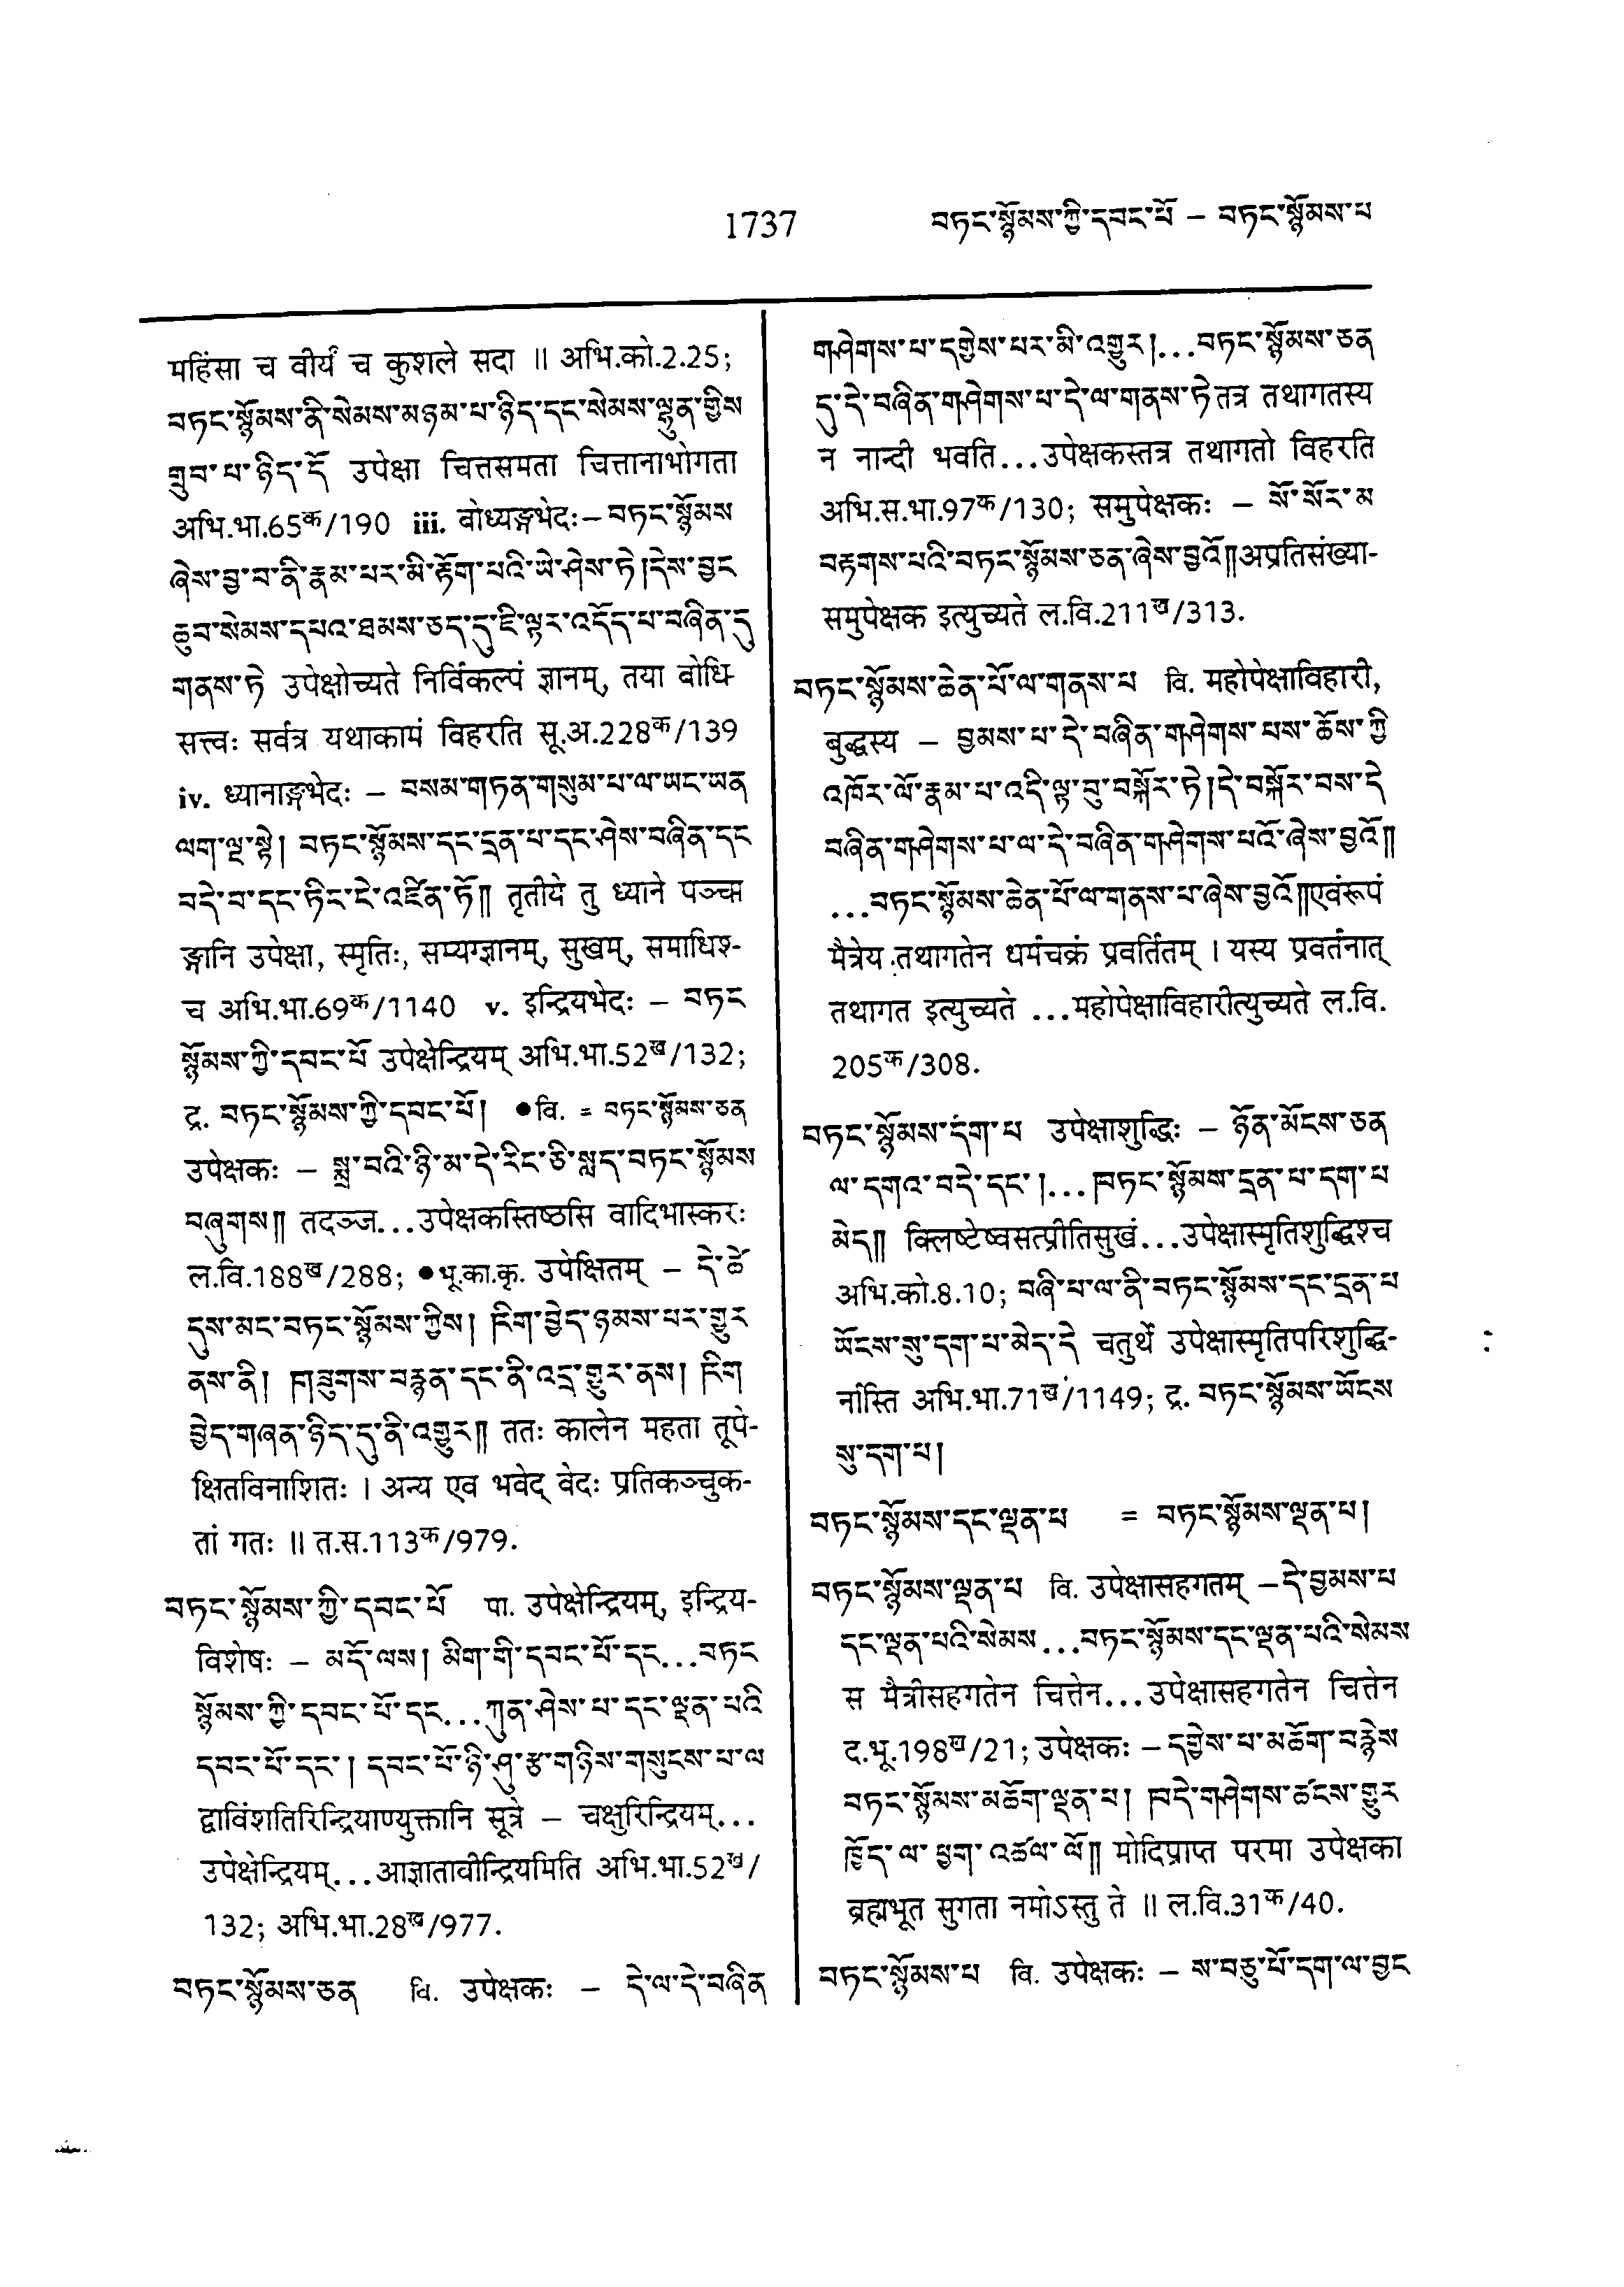 1737 བཏང་སྙོམས་ཀྱི་དབང་པོ – བཏང་སྙོམས་པ
महिंसा च वीर्यं च कुशले सदा ॥ अभि.को.2.25;
བཏང་སྙོམས་ནི་སེམས་མཉམ་པ་ཉིད་དང་སེམས་ལྷུན་གྱིས
གྲུབ་པ་ཉིད་དོ उपेक्षा चित्तसमता चित्तानाभोगता
अभि.भा.65क/190 iii. बोध्यङ्गभेदः – བཏང་སྙོམས
ཞེས་བྱ་བ་ནི་རྣམ་པར་མི་རྟོག་པའི་ཡེ་ཤེས་ཏེ།དེས་བྱང
ཆུབ་སེམས་དཔའ་ཐམས་ཅད་དུ་ཇི་ལྟར་འདོད་པ་བཞིན་དུ
གནས་ཏེ उपेक्षोच्यते निर्विकल्पं ज्ञानम्, तया बोधि-
सत्त्वः सर्वत्र यथाकामं विहरति सू.अ.228क/139
iv. ध्यानाङ्गभेदः – བསམ་གཏན་གསུམ་པ་ལ་ཡང་ཡན
ལག་ལྔ་སྟེ། བཏང་སྙོམས་དང་དྲན་པ་དང་ཤེས་བཞིན་དང
བདེ་བ་དང་ཏིང་ངེ་འཛིན་ཏོ༎ तृतीये तु ध्याने पञ्चा
ङ्गानि उपेक्षा, स्मृतिः, सम्यग्ज्ञानम्, सुखम्, समाधिश्-
च अभि.भा.69क/1140 v. इन्द्रियभेदः – བཏང
སྙོམས་ཀྱི་དབང་པོ उपेक्षेन्द्रियम् अभि.भा.52ख/132;
द्र. བཏང་སྙོམས་ཀྱི་དབང་པོ། ●वि. = བཏང་སྙོམས་ཅན
उपेक्षकः – སྨྲ་བའི་ཉི་མ་དེ་རིང་ཅི་སླད་བཏང་སྙོམས
བཞུགས༎ तदञ्ज...उपेक्षकस्तिष्ठसि वादिभास्करः
ल.वि.188ख/288; ●भू.का.कृ. उपेक्षितम् – དེ་ཚེ
དུས་མང་བཏང་སྙོམས་ཀྱིས། །རིག་བྱེད་ཉམས་པར་གྱུར
ནས་ནི། །གཟུགས་བརྙན་དང་ནི་འདྲ་གྱུར་ནས། །རིག
བྱེད་གཞན་ཉིད་དུ་ནི་འགྱུར༎ ततः कालेन महता तूपे-
क्षितविनाशितः । अन्य एव भवेद् वेदः प्रतिकञ्चुक-
तां गतः ॥ त.स.113क/979.
བཏང་སྙོམས་ཀྱི་དབང་པོ पा. उपेक्षेन्द्रियम्, इन्द्रिय-
विशेषः – མདོ་ལས། མིག་གི་དབང་པོ་དང...བཏང
སྙོམས་ཀྱི་དབང་པོ་དང...ཀུན་ཤེས་པ་དང་ལྡན་པའི
དབང་པོ་དང་། དབང་པོ་ཉི་ཤུ་རྩ་གཉིས་གསུངས་པ་ལ
द्वाविंशतिरिन्द्रियाण्युक्तानि सूत्रे – चक्षुरिन्द्रियम्...
उपेक्षेन्द्रियम्...आज्ञातावीन्द्रियमिति अभि.भा.52ख/
132; अभि.भा.28ख/977.
བཏང་སྙོམས་ཅན वि. उपेक्षकः – དེ་ལ་དེ་བཞིན
གཤེགས་པ་དགྱེས་པར་མི་འགྱུར།...བཏང་སྙོམས་ཅན
དུ་དེ་བཞིན་གཤེགས་པ་དེ་ལ་གནས་ཏེ तत्र तथागतस्य
न नान्दी भवति...उपेक्षकस्तत्र तथागतो विहरति
अभि.स.भा.97क/130; समुपेक्षकः – སོ་སོར་མ
བརྟགས་པའི་བཏང་སྙོམས་ཅན་ཞེས་བྱའོ༎अप्रतिसंख्या-
समुपेक्षक इत्युच्यते ल.वि.211ख/313.
བཏང་སྙོམས་ཆེན་པོ་ལ་གནས་པ वि. महोपेक्षाविहारी,
बुद्धस्य – བྱམས་པ་དེ་བཞིན་གཤེགས་པས་ཆོས་ཀྱི
འཁོར་ལོ་རྣམ་པ་འདི་ལྟ་བུ་བསྐོར་ཏེ།དེ་བསྐོར་བས་དེ
བཞིན་གཤེགས་པ་ལ་དེ་བཞིན་གཤེགས་པའོ་ཞེས་བྱའོ༎
...བཏང་སྙོམས་ཆེན་པོ་ལ་གནས་པ་ཞེས་བྱའོ༎एवंरूपं
मैत्रेय तथागतेन धर्मचक्रं प्रवर्तितम् । यस्य प्रवर्तनात्
तथागत इत्युच्यते ...महोपेक्षाविहारीत्युच्यते ल.वि.
205क/308.
བཏང་སྙོམས་དག་པ उपेक्षाशुद्धिः – ཉོན་མོངས་ཅན
ལ་དགའ་བདེ་དང་།...།བཏང་སྙོམས་དྲན་པ་དག་པ
མེད༎ क्लिष्टेष्वसत्प्रीतिसुखं...उपेक्षास्मृतिशुद्धिश्च
अभि.को.8.10; བཞི་པ་ལ་ནི་བཏང་སྙོམས་དང་དྲན་པ
ཡོངས་སུ་དག་པ་མེད་དེ चतुर्थे उपेक्षास्मृतिपरिशुद्धि-
र्नास्ति अभि.भा.71ख/1149; द्र. བཏང་སྙོམས་ཡོངས
སུ་དག་པ།
བཏང་སྙོམས་དང་ལྡན་པ = བཏང་སྙོམས་ལྡན་པ།
བཏང་སྙོམས་ལྡན་པ वि. उपेक्षासहगतम् – དེ་བྱམས་པ
དང་ལྡན་པའི་སེམས...བཏང་སྙོམས་དང་ལྡན་པའི་སེམས
स मैत्रीसहगतेन चित्तेन...उपेक्षासहगतेन चित्तेन
द.भू.198ख/21; उपेक्षकः – དགྱེས་པ་མཆོག་བརྙེས
བཏང་སྙོམས་མཆོག་ལྡན་པ། །བདེ་གཤེགས་ཚངས་གྱུར
ཁྱོད་ལ་ཕྱག་འཚལ་ལོ༎ मोदिप्राप्त परमा उपेक्षका
ब्रह्मभूत सुगता नमोऽस्तु ते ॥ ल.वि.31क/40.
བཏང་སྙོམས་པ वि. उपेक्षकः – ས་བཅུ་པོ་དག་ལ་བྱང